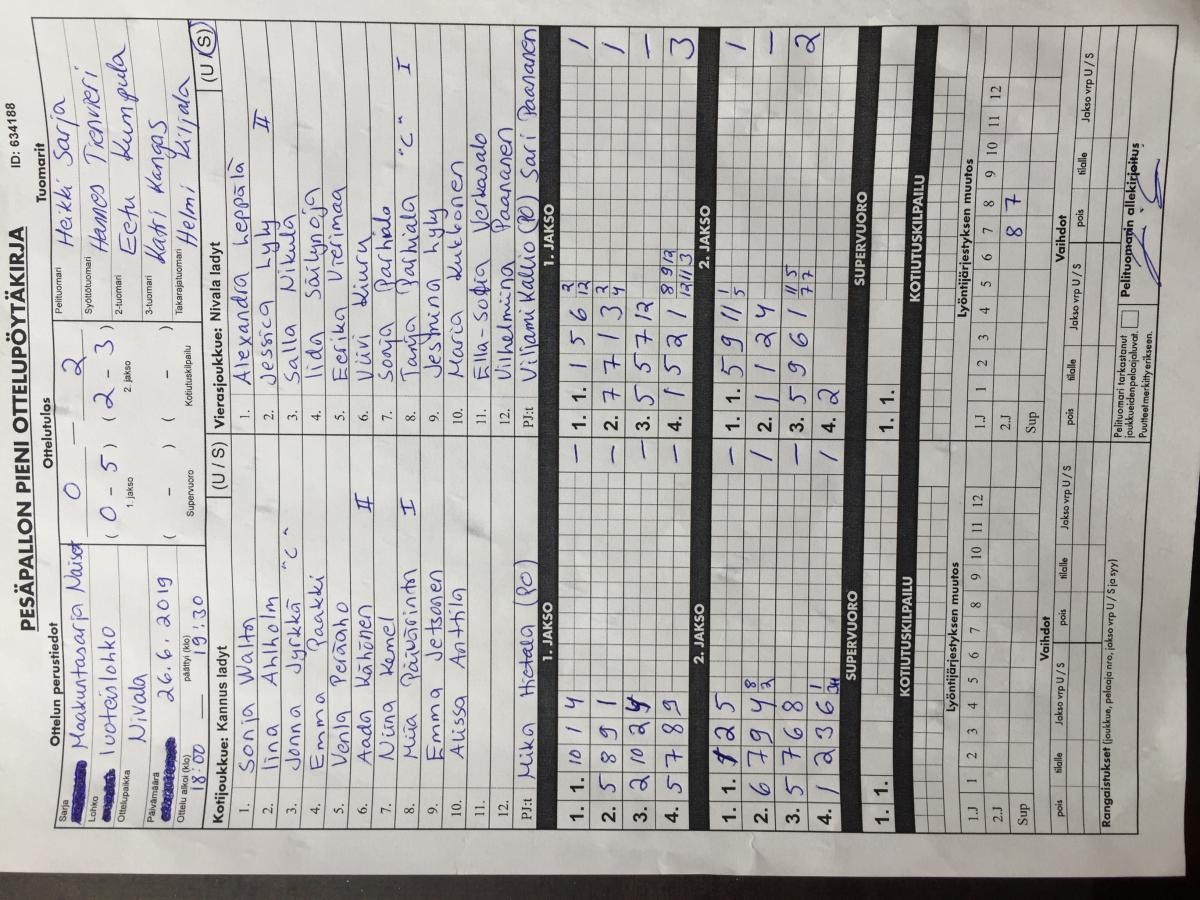 PESÄPALLON PIENI OTTELUPÖYTÄKIRJA ID: 634188
Ottelun perustiedot
Sarja Maakuntasarja Naiset
Lohko
Ottelupaikka Nivala
Päivämäärä 26.6.2019
Ottelu alkoi (klo) 18:00 päättyi (klo) 19:30
Ottelutulos
0 — 2
( 0 - 5 ) ( 2 - 3 )
1. jakso 2. jakso
( - ) ( - )
Supervuoro Kotiutuskilpailu
Tuomarit
Pelituomari Heikki Sarja
Syöttötuomari Hannes Tienvieri
2-tuomari Eetu Kumpula
3-tuomari Katri Kangas
Takarajatuomari Helmi Kiljala
Kotijoukkue: Kannus ladyt (U / S)
1. Sonja Walton
2. Iina Ahlholm
3. Jonna Jyrkkä "C"
4. Emma Paakki
5. Venla Peräaho
6. Aada Kähönen II
7. Niina Kemel
8. Miia Päivärinta I
9. Emma Jetsonen
10. Alissa Anttila
11.
12.
PJ:t Mika Hietala (PC)
Vierasjoukkue: Nivala ladyt (U / S)
1. Alexandra Leppälä
2. Jessica Hyry II
3. Salla Nikula
4. Iida Säilynoja
5. Eerika Vierimaa
6. Viivi Kiuru
7. Sonja Parhiala
8. Tanja Parhiala "C" I
9. Jesmina Hyry
10. Maria Kukkonen
11. Ella-Sofia Verkasalo
12. Vilhelmiina Paananen
PJ:t Viljami Kallio (PC) Sari Paananen
1. JAKSO
1. 1. 10 1 4 –
2. 5 8 9 1 –
3. 2 10 2 4 –
4. 5 7 8 9 –
2. JAKSO
1. 1. 1 2 5 –
2. 6 7 9 4 8/2 1
3. 5 7 6 8 –
4. 1 2 3 6 1
SUPERVUORO
1. 1.
KOTIUTUSKILPAILU
1. JAKSO
1. 1. 1 5 6 2/12 1
2. 7 7 1 3 2/4 1
3. 5 5 7 12 –
4. 1 5 2 1 8 9 12 11 3 3
2. JAKSO
1. 1. 5 9 11 1/5 1
2. 1 1 2 4 –
3. 5 9 6 1 11 5 7 7 2
4. 2 2
SUPERVUORO
1. 1.
KOTIUTUSKILPAILU
Lyöntijärjestyksen muutos
1.J 1 2 3 4 5 6 7 8 9 10 11 12
2.J
Sup
Vaihdot
pois tilalle Jakso vrp U / S pois tilalle Jakso vrp U / S
Rangaistukset (joukkue, pelaaja nro, jakso vrp U / S ja syy)
Lyöntijärjestyksen muutos
1.J 1 2 3 4 5 6 7 8 9 10 11 12
2.J 8 7
Sup
Vaihdot
pois tilalle Jakso vrp U / S pois tilalle Jakso vrp U / S
Pelituomari tarkastanut
joukkueidenpelaajaluvat.
Puutteet merkitty erikseen.
Pelituomarin allekirjoitus